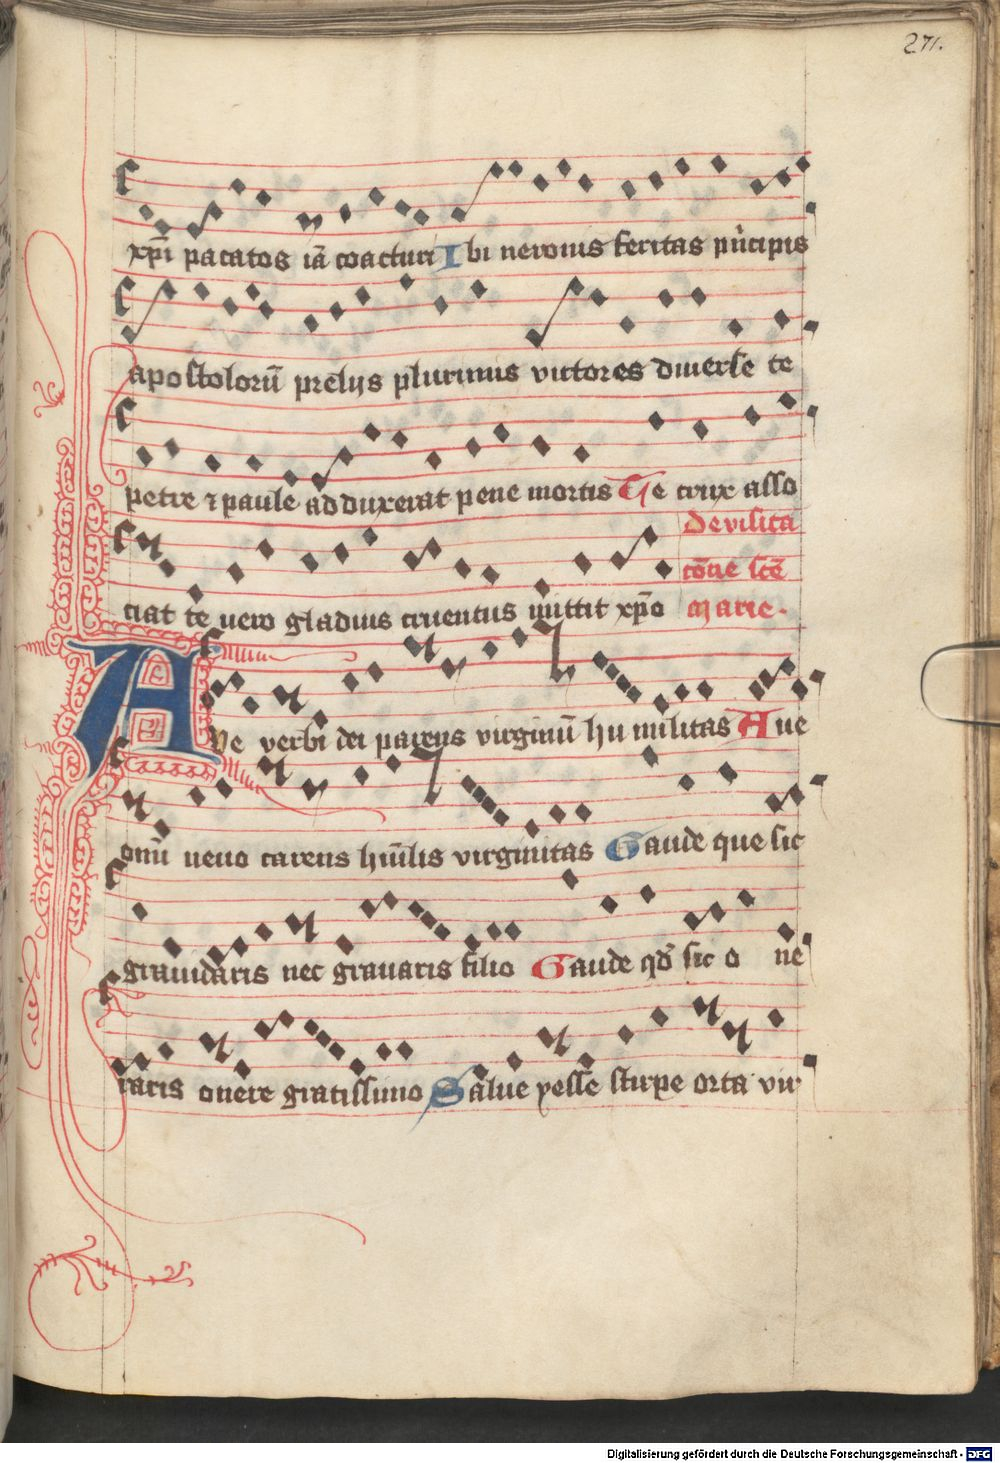 271.
xp̄i pacatos iā coacturi Ibi neronis feritas pn̍cipis
apostolorū prelijs plurimis victores diuerse te
petre ⁊ paule adduxerat pene mortis Te crux asso
ciat te uero gladius cruentus mittit xp̄o
De visita
cōne scē
marie.
AVe verbi dei parens virginū hu militas Aue
omī neuo carens hūilis virginitas Gaude que sic
grauidaris nec grauaris filio Gaude qd̄ sic o ne
raris onere gratissimo Salue yesse stirpe orta vir
Digitalisierung gefördert durch die Deutsche Forschungsgemeinschaft - DFG